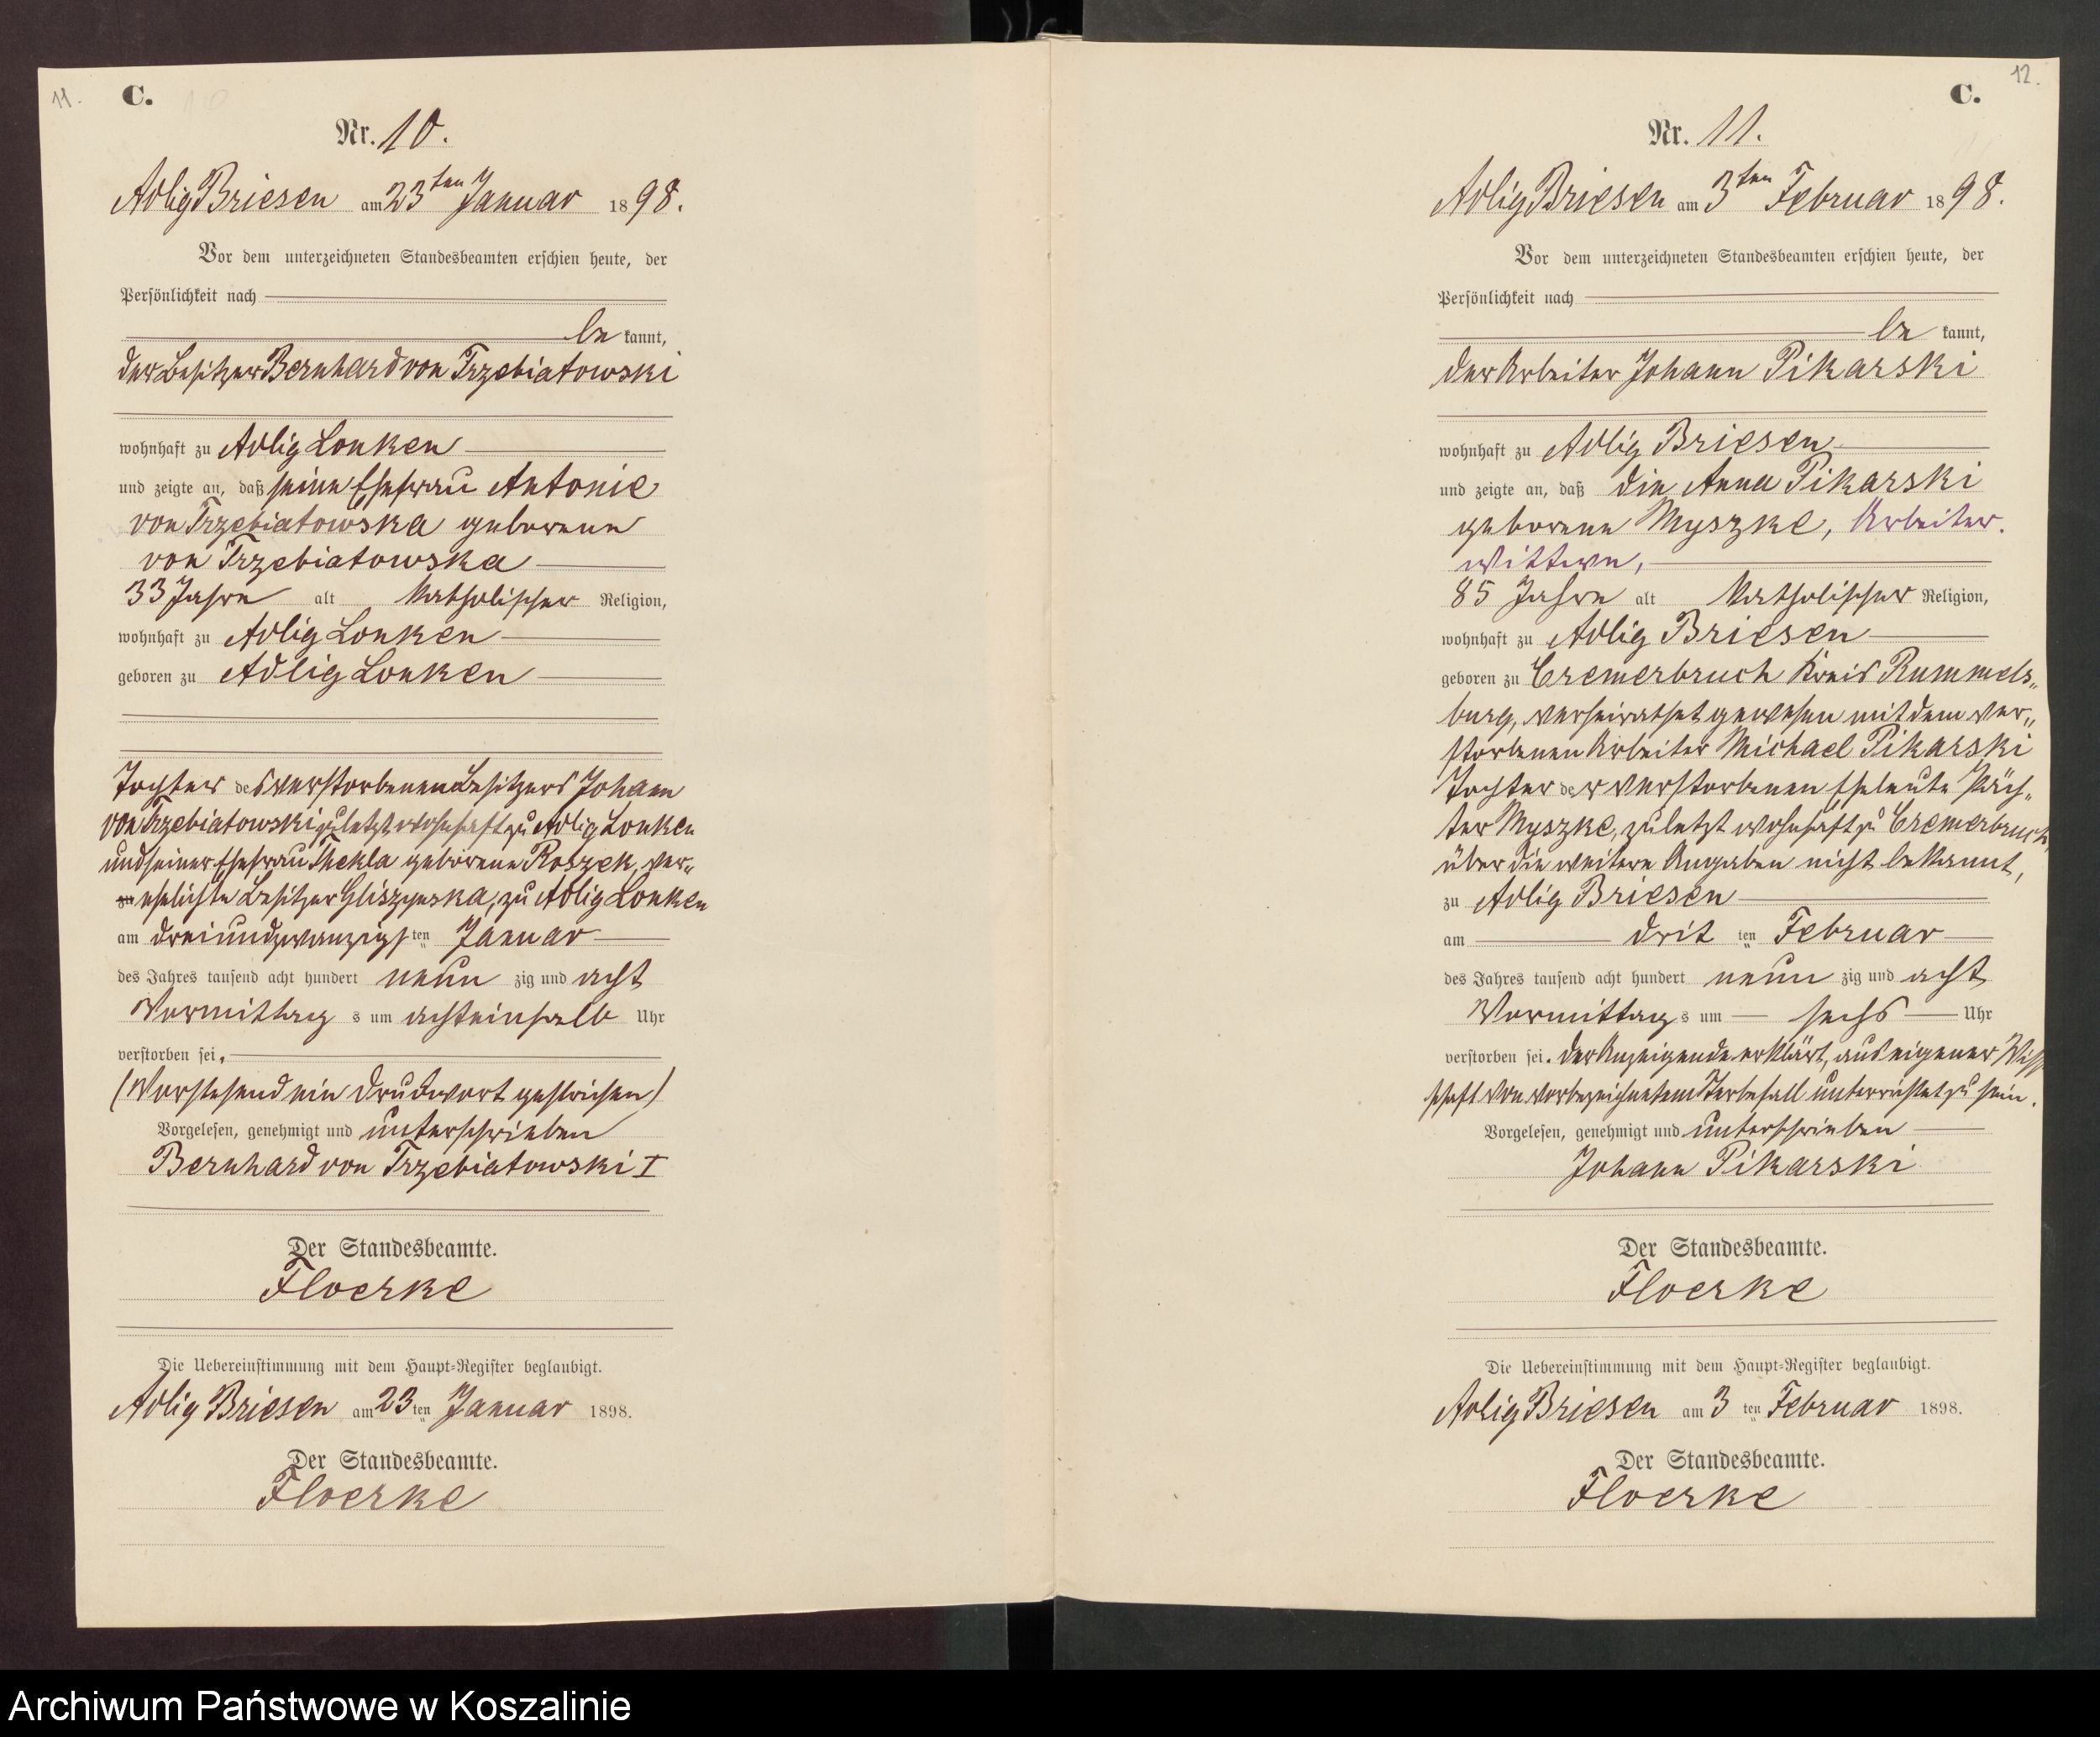 11.
C.
Nr. 10.
Adlig Briesen am 23ten Januar 1898.
Vor dem unterzeichneten Standesbeamten erschien heute, der
Persönlichkeit nach
be kannt,
der Besitzer Bernhard von Trzebiatowski
wohnhaft zu Adlig Lonken
und zeigte an, daß seine Ehefrau Antonie
von Trzebiatowska geborene
von Trzebiatowska
33 Jahre alt katholischer Religion,
wohnhaft zu Adlig Lonken
geboren zu Adlig Lonken
Tochter des verstorbenen Besitzers Johann
von Trzebiatowski zuletzt wohnhaft zu Adlig Lonken
und seiner Ehefrau Thekla geborene Roszek, ver„
zu ehelichte Besitzer Gliszynska, zu Adlig Lonken
am dreiundzwanzigsten Januar
des Jahres tausend acht hundert neun zig und acht
Vormittag s um achteinhalb Uhr
verstorben sei,
(Vorstehend ein Druckwort gestrichen)
Vorgelesen, genehmigt und unterschrieben
Bernhard von Trzebiatowski I
Der Standesbeamte.
Floerke
Die Uebereinstimmung mit dem Haupt-Register beglaubigt.
Adlig Briesen am 23 ten Januar 1898.
Der Standesbeamte.
Floerke
12.
C.
Nr. 11.
Adlig Briesen am 3ten Februar 1898.
Vor dem unterzeichneten Standesbeamten erschien heute, der
Persönlichkeit nach
be kannt,
der Arbeiter Johann Pikarski
wohnhaft zu Adlig Briesen
und zeigte an, daß die Anna Pikarski
geborene Myszke, Arbeiter.
wittwe,
85 Jahre alt katholischer Religion,
wohnhaft zu Adlig Briesen
geboren zu Cremerbruch Kreis Rummels„
burg, verheirathet gewesen mit dem ver„
storbenen Arbeiter Michael Pikarski
Tochter der verstorbenen Eheleute Päch„
ter Myszke, zuletzt wohnhaft zu Cremerbruch,
über die weitere Angaben nicht bekannt,
zu Adlig Briesen
am drit ten Februar
des Jahres tausend acht hundert neun zig und acht
Vormittag s um sechs Uhr
verstorben sei. Der Anzeigende erklärt, aus eigener Wiss
schaft von vorbezeichnetem Sterbefall unterrichtet zu sein.
Vorgelesen, genehmigt und unterschrieben
Johann Pikarski
Der Standesbeamte.
Floerke
Die Uebereinstimmung mit dem Haupt-Register beglaubigt.
Adlig Briesen am 3 ten Februar 1898.
Der Standesbeamte.
Floerke
Archiwum Państwowe w Koszalinie